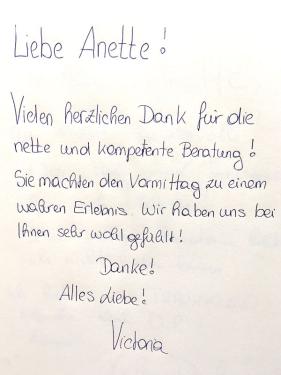 Liebe Anette!
Vielen herzlichen Dank für die
nette und kompetente Beratung!
Sie machten den Vormittag zu einem
wahren Erlebnis. Wir haben uns bei
Ihnen sehr wohl gefühlt!
Danke!
Alles Liebe!
Victoria